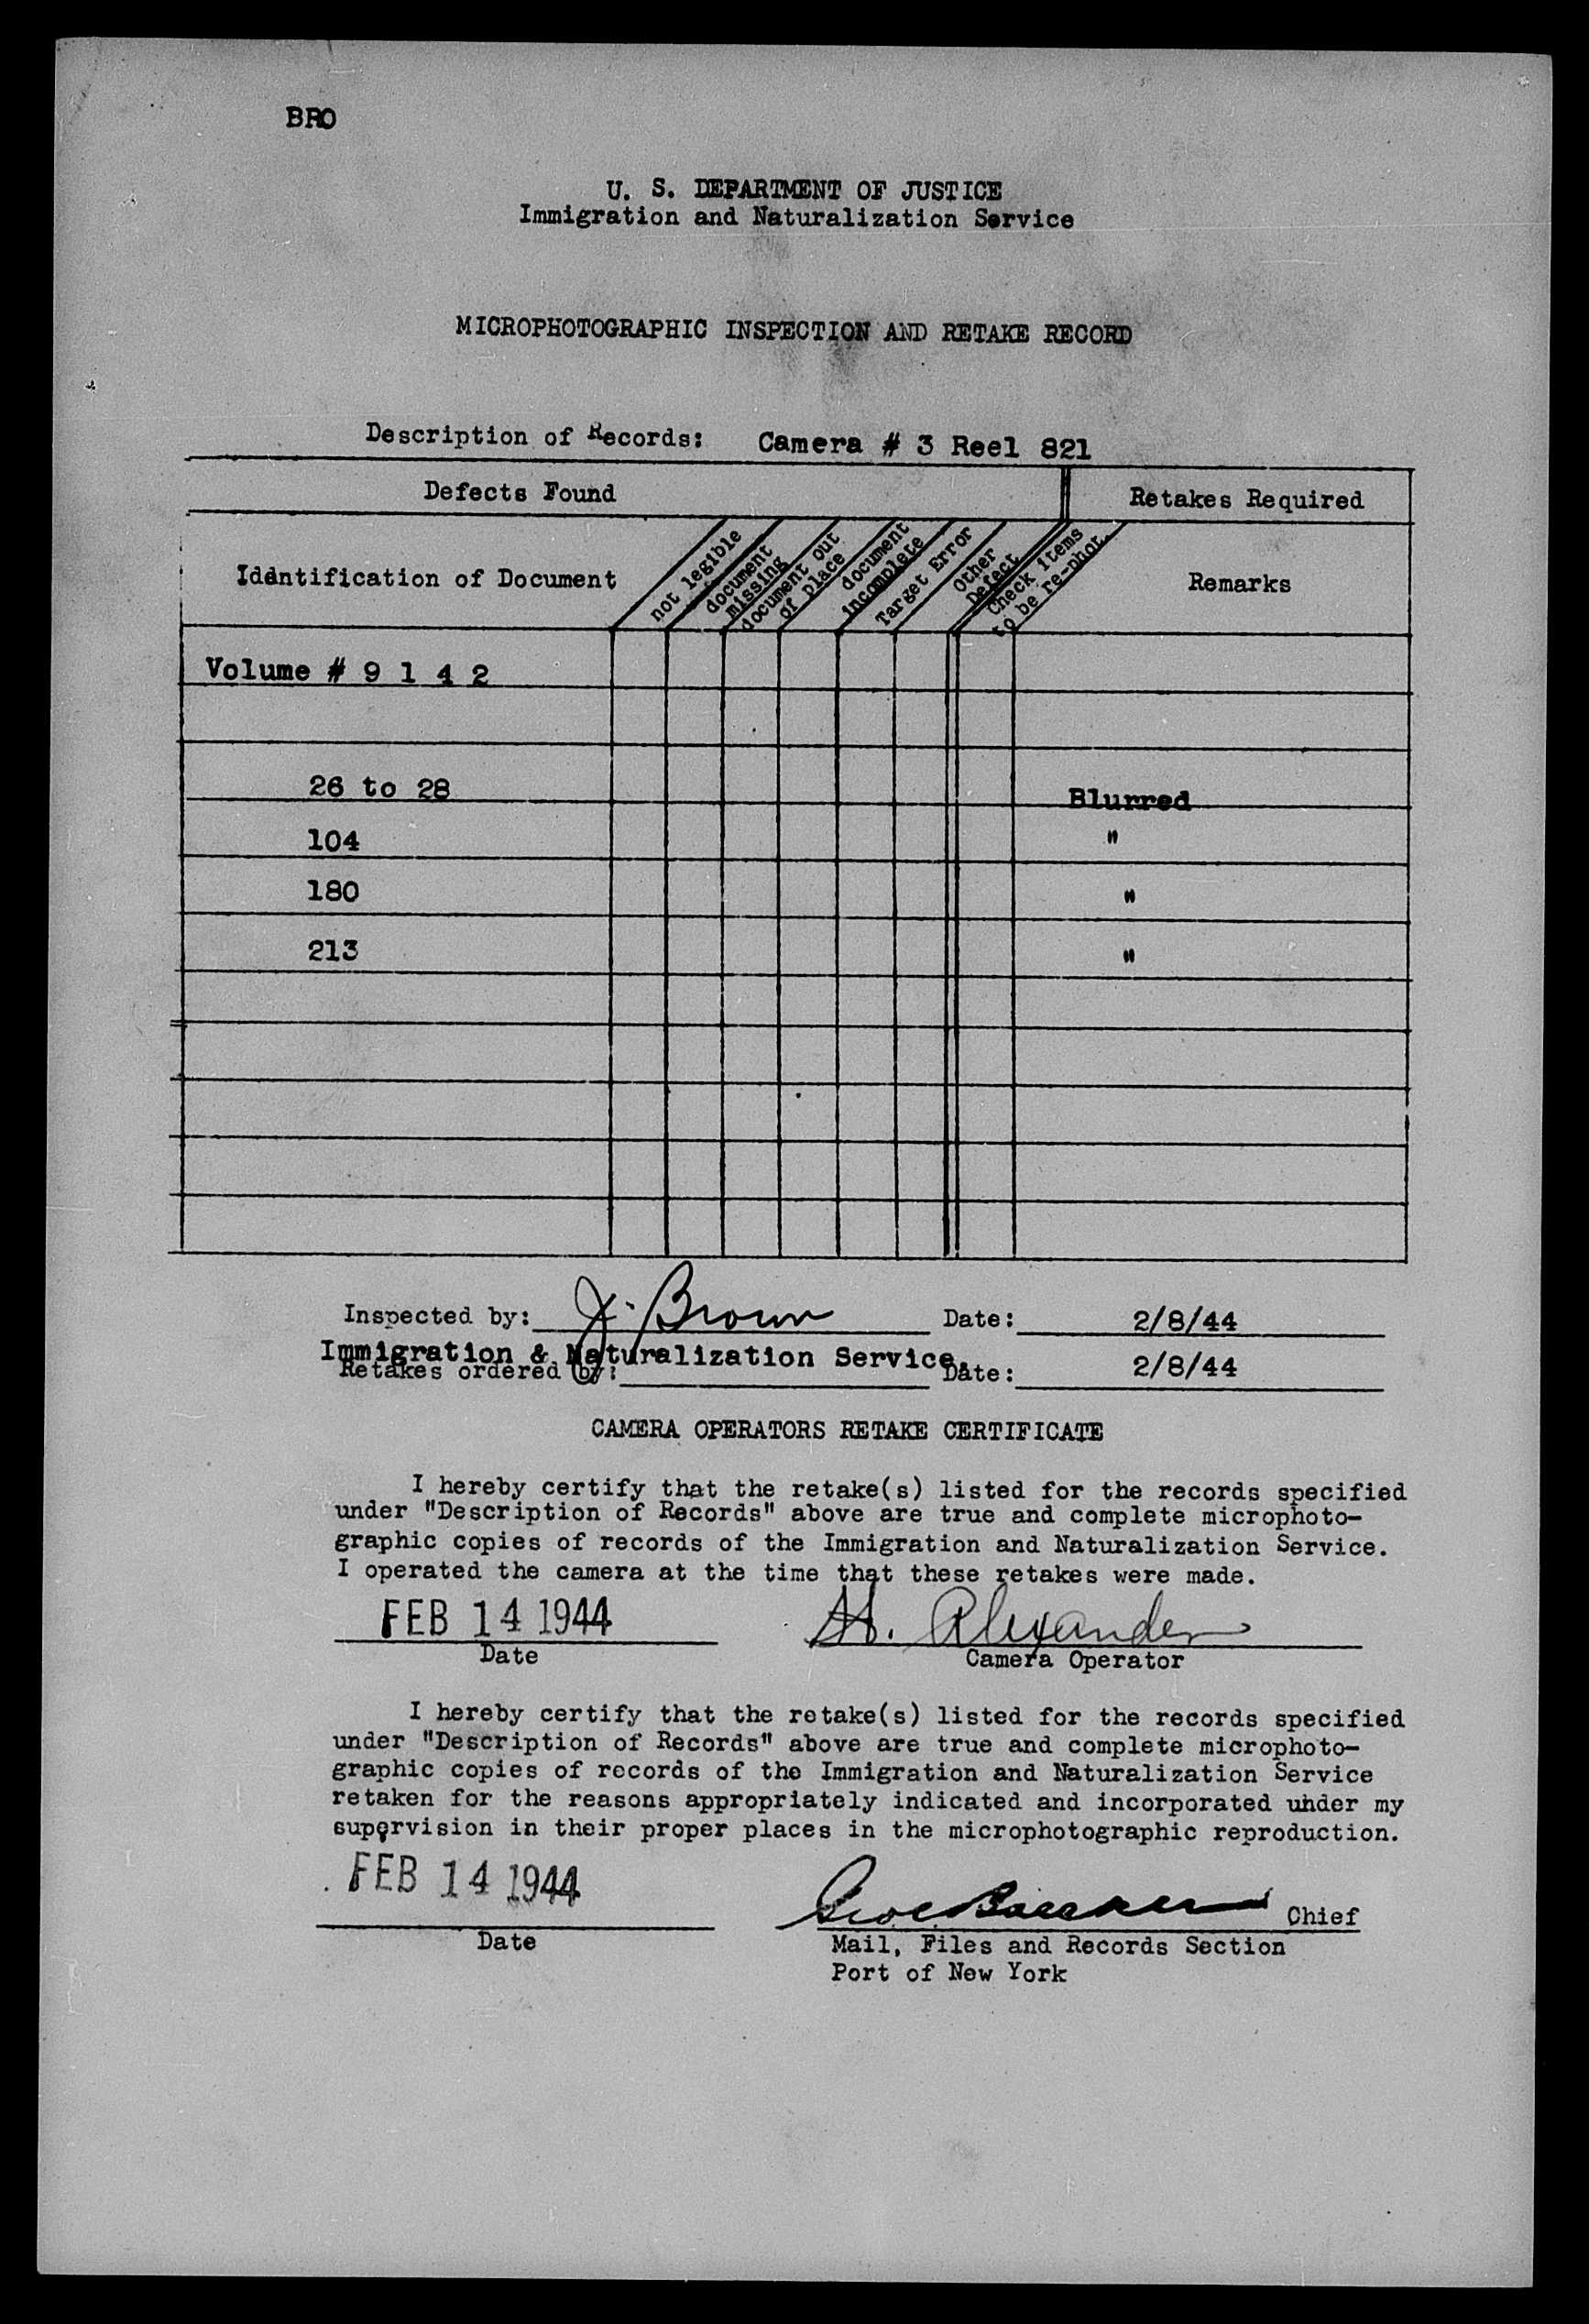 BRO
U. S. DEPARTMENT OF JUSTICE
Immigration and Naturalization Service
MICROPHOTOGRAPHIC INSPECTION AND RETAKE RECORD
Description of Records: Camera # 3 Reel 821
Defects Found
Retakes Required
Idantification of Document
not legible
document missing
document out of place
document incomplete
Target Error
Other Defect
Check items to be re-phot.
Remarks
Volume # 9 1 4 2
26 to 28 Blurred
104 "
180 "
213 "
Inspected by: J. Brown Date: 2/8/44
Immigration & Naturalization Service.
Retakes ordered by: Date: 2/8/44
CAMERA OPERATORS RETAKE CERTIFICATE
I hereby certify that the retake(s) listed for the records specified
under "Description of Records" above are true and complete microphoto-
graphic copies of records of the Immigration and Naturalization Service.
I operated the camera at the time that these retakes were made.
FEB 14 1944 H. Alexander
Date Camera Operator
I hereby certify that the retake(s) listed for the records specified
under "Description of Records" above are true and complete microphoto-
graphic copies of records of the Immigration and Naturalization Service
retaken for the reasons appropriately indicated and incorporated under my
supervision in their proper places in the microphotographic reproduction.
FEB 14 1944 Chief
Date Mail, Files and Records Section
Port of New York